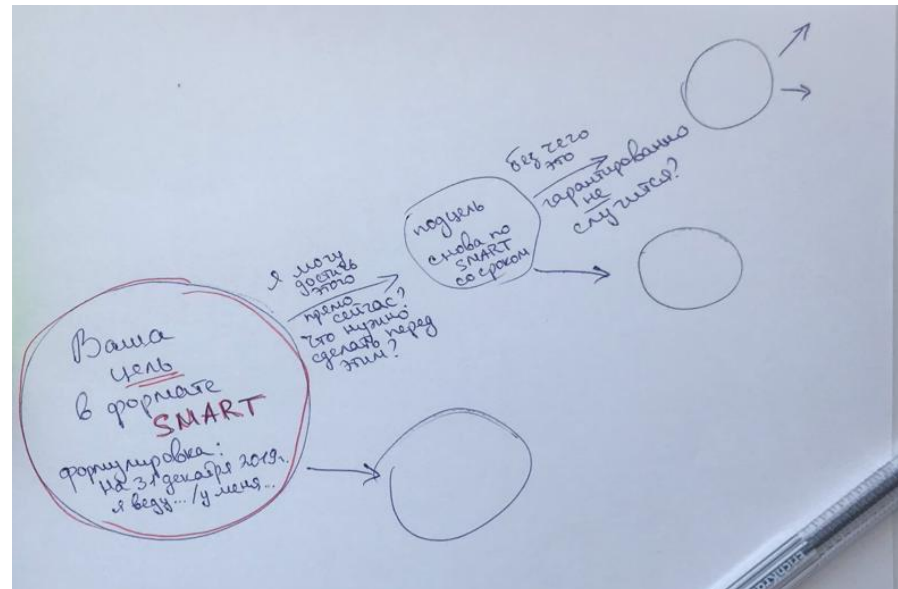 Ваша
цель
в формате
SMART
формулировка:
на 31 декабря 2019г.
я веду... /у меня...
я могу
достичь
этого
прямо
сейчас?
что нужно
сделать перед
этим?
подцель
снова по
SMART
со сроком
без чего
это
гарантированно
не
случится?